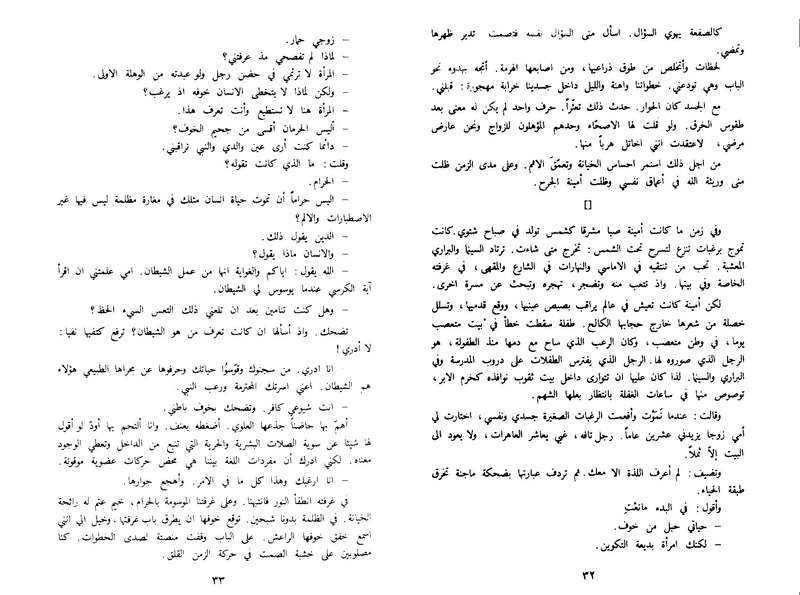 كالصفعة يهوي السؤال. اسأل منى السؤال نفسه فتصمت تدير ظهرها
وتمضي.
لحظات وأتخلص من طوق ذراعيها، ومن اصابعها الهرمة. أتجه بهدوء نحو
الباب وهي تودعني. خطواتنا واهنة والليل داخل جسدينا خرابة مهجورة: قبلني.
مع الجسد كان الحوار. حدث ذلك تعثّراً. حرف واحد لم يكن له معنى بعد
طقوس الخرق. ولو قلت لها الاصحّاء وحدهم المؤهلون للزواج ونحن عارض
مرضي، لاعتقدت انني اخاتل هرباً منها.
من اجل ذلك استمر احساس الخيانة وتعمّق الاثم. وعلى مدى الزمن ظلت
منى وريثة الله في أعماق نفسي وظلت أمينة الجرح.
[]
وفي زمن ما كانت أمينة صبا مشرقا كشمس تولد في صباح شتوي. كانت
تموج برغبات تنزع لتسرح تحت الشمس: تخرج متى شاءت. ترتاد السينما والبراري
المعشبة. تحب من تنتقيه في الاماسي والنهارات في الشارع والمقهى، في غرفته
الخاصة وفي بيتها. واذ تتعب منه وتضجر، تهجره وتبحث عن مسرة اخرى.
لكن أمينة كانت تعيش في عالم يراقب بصيص عينيها، ووقع قدميها، وتسلل
خصلة من شعرها خارج حجابها الكالح. طفلة سقطت خطأ في بيت متعصب
يوما، في وطن متعصب، وكان الرعب الذي ساح مع دمها منذ الطفولة، هو
الرجل الذي صوروه لها. الرجل الذي يفترس الطفلات على دروب المدرسة وفي
البراري والسينما. لذا كان عليها ان تتوارى داخل بيت ثقوب نوافذه كخرم الابر،
توصوص منها في ساعات الغفلة بانتظار بعلها الشهم.
وقالت: عندما نَمَوْت وأفعمت الرغبات الصغيرة جسدي ونفسي، اختارت لي
أمي زوجا يزيدني عشرين عاماً. رجل تافه، غبي يعاشر العاهرات، ولا يعود الى
البيت إلاّ ثملاً.
وتضيف: لم أعرف اللذة الا معك. ثم تردف عبارتها بضحكة ماجنة تخرق
طبقة الحياء.
وأقول: في البدء مانعْتِ
– حياتي حبل من خوف.
– لكنك امرأة بديعة التكوين.
٣٢
– زوجي حمار.
– لماذا لم تفصحي مذ عرفتني؟
– المرأة لا ترتمي في حضن رجل ولو عبدته من الوهلة الاولى.
– ولكن لماذا لا يتخطى الانسان خوفه اذ يرغب؟
– المرأة هنا لا تستطيع وأنت تعرف هذا.
– أليس الحرمان أقسى من جحيم الخوف؟
– دائما كنت أرى عين والدي والنبي تراقبني.
وقلت: ما الذي كانت تقوله؟
– الحرام.
– اليس حراماً أن تموت حياة انسان مثلك في مغارة مظلمة ليس فيها غير
الاصطبارات والالم؟
– الدين يقول ذلك.
– والانسان ماذا يقول؟
– الله يقول: اياكم والغواية انها من عمل الشيطان. امي علمتني ان اقرأ
آية الكرسي عندما يوسوس لي الشيطان.
– وهل كنت تنامين بعد ان تلعني ذلك التعس السيء الحظ؟
تضحك. واذ أسألها ان كانت تعرف من هو الشيطان؟ ترفع كتفيها نفيا:
لا أدري!
انا ادري. من سجنوك وقوّسوُا حياتك وحرفوها عن مجراها الطبيعي هؤلاء
هم الشيطان. اعني اسرتك المحترمة ورعب النبي.
– انت شيوعي كافر. وتضحك بخوف باطني.
أهمّ بها حاضناً جذعها العلوي. أضغطه بعنف. وانا ألتحم بها أودّ لو أقول
لها شيئا عن سوية الصلات البشرية والحرية التي تنبع من الداخل وتعطي الوجود
معناه. لكني ادرك أن مفردات اللغة بيننا هي محض حركات عضوية موقوتة.
– انا ارغبك وهذا كل ما في الامر. وأهجع جوارها.
في غرفته انطفأ النور فانتبهنا. وعلى غرفتنا الموسومة بالحرام، خيم عتم له رائحة
الخيانة. في الظلمة بدونا شبحين. توقع خوفها ان يطرق باب غرفتها، وخيل الي انني
اسمع خفق خوفها الراعش. على الباب وقفت منصتة لصدى الخطوات. كنا
مصلوبين على خشبة الصمت في حركة الزمن القلق.
٣٣